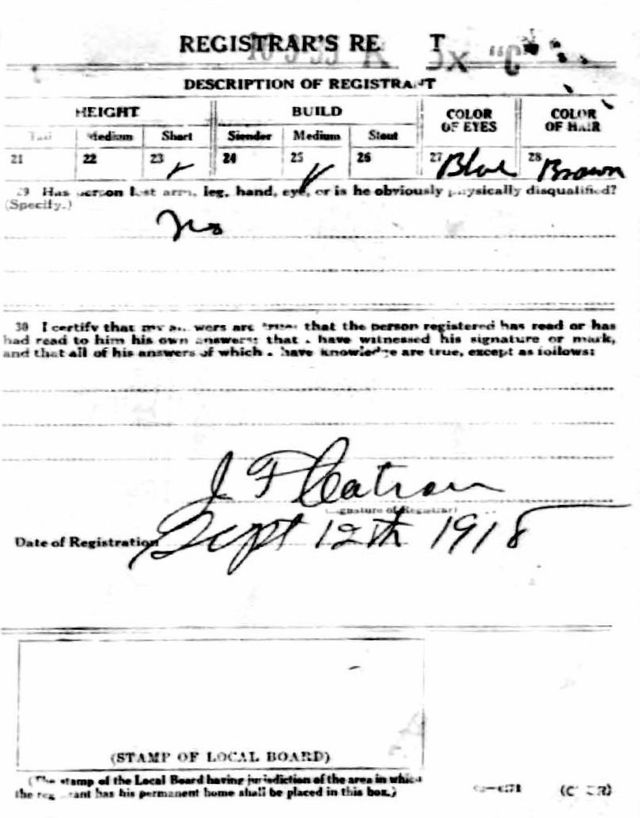 REGISTRAR'S RE T
"C"
DESCRIPTION OF REGISTRANT
HEIGHT BUILD COLOR OF EYES COLOR OF HAIR
Tall Medium Short Slender Medium Stout
21 22 23 ✓ 24 25 ✓ 26 27 Blue 28 Brown
29 Has person lost arm, leg, hand, eye, or is he obviously physically disqualified?
(Specify.)
No
30 I certify that my answers are true; that the person registered has read or has
had read to him his own answers; that I have witnessed his signature or mark,
and that all of his answers of which I have knowledge are true, except as follows:
J F Catron
(Signature of Registrar)
Date of Registration Sept 12th 1918
(STAMP OF LOCAL BOARD)
(The stamp of the Local Board having jurisdiction of the area in which
the registrant has his permanent home shall be placed in this box.)